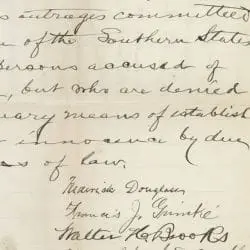 s outrages committed
of the Southern States
persons accused of
, but who are denied
uary means of establish
innocence by due
ss of law.
Frederick Douglass
Francis J. Grimké
Walter H. Brooks